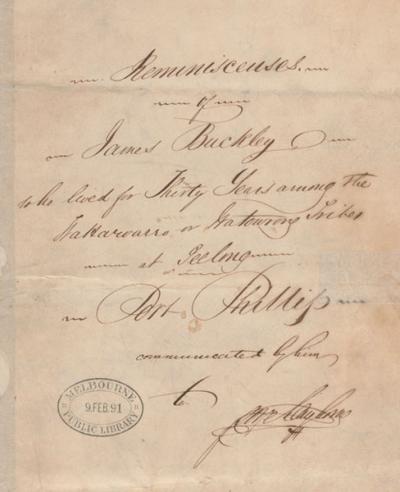 Reminiscenses.
of
James Buckley
who lived for Thirty Years among the
Wakarwarro or Watourong Tribes
at Geelong
Port Phillip
communicated by him
to
MELBOURNE
9.FEB.91
PUBLIC LIBRARY